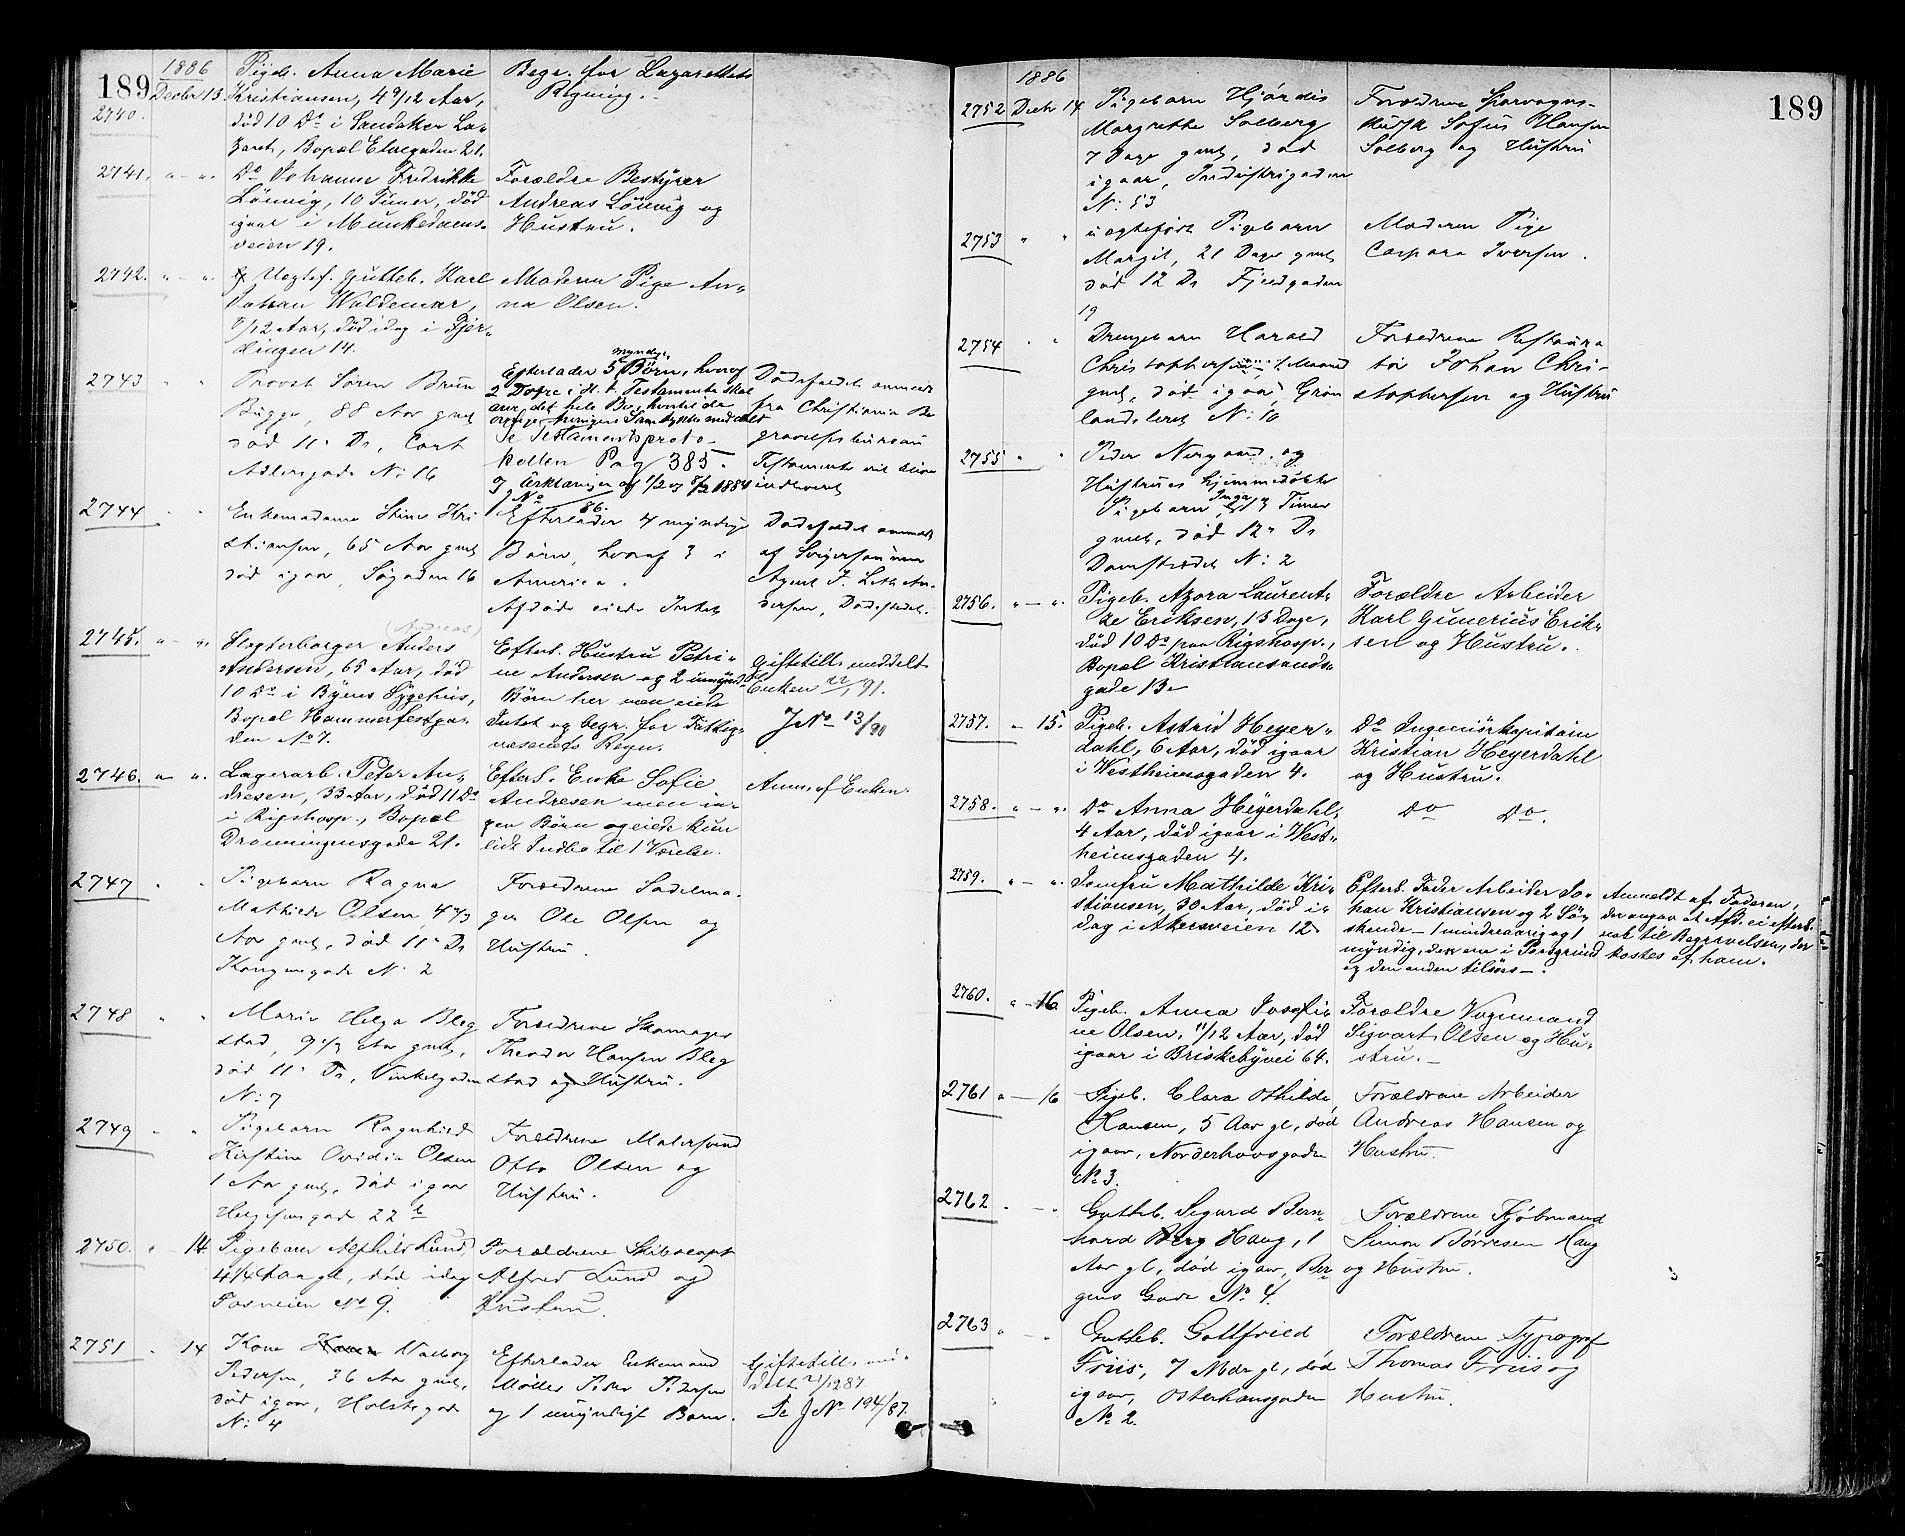 189
1886
2740.
Decbr 13
Pigeb. Anna Marie
Kristiansen, 4 9/12 Aar,
död 10 Ds i Sandaker La-
zaret, Bopæl Elvegaden 21.
Begr. for Lazarettets
Regning.-
2741. " - "
Do Johanne Fredrikke
Lönvig, 10 Timer, död
igaar i Munkedams-
veien 19.
Forældre Bestyrer
Andreas Lönvig og
Hustru.
2742. " - "
Uægtef. Gutteb. Karl
Johan Waldemar,
/12 Aar, död idag i Fjer-
dingen 14.
Moderen Pige An-
na Olsen.
2743 " "
Provst Sören Brun
Bugge, 88 Aar gml
död 11 Ds, Cort
Adlersgade N: 16
myndige
Efterlader 5 Börn, hvoraf
2 Døtre i H. t. Testamente skal
arve det hele Bo, hvortil de
övrige Arvingers Samtykke meddelt
Se Testamentsproto-
kollen Pag 385.
Erklæringer af 1/2 og 8/2 1884
J No /86.
Dödsfaldet anmeldt
fra Christiania Be
gravelsesbureau
Testamente vil blive
indleveret
2744 " "
Enkemadame Stine Kri
stiansen, 65 Aar gml
död igaar, Søgaden 16
Efterlader 4 myndige
Börn, hvoraf 3 i
America.
Afdöde eiede Intet
Dødsfaldet anmeldt
af Svigersønnen
Agent J. Leth An-
dersen, Dødsstedet.
2745. " - "
(Andreas)
Slagterborger Anders
Andersen, 65 Aar, död
10 Ds i Byens Sygehus,
Bopæl Hammerfestga-
den No 7.
Efterl. Hustru Petri-
ne Andersen og 2 umynd.
Börn her men eiede
Intet og begr. for Fattig-
væsenets Regn.
Giftetill. meddelt
Enken 22/1 91.
J No 13/91
2746. " - "
Lagerarb. Peter An-
dresen, 33 Aar, död 11 Ds
i Rigshosp., Bopæl
Dronningensgade 21.
Efterl. Enke Sofie
Andresen men in-
gen Börn og eiede kun
lidt Indbo til 1 Værelse.
Anm. af Enken.
2747 " "
Pigebarn Ragna
Mathilde Olsen, 4 1/3
Aar gml, död 11 Ds
Kongensgade N: 2
Forældrene Sadelma-
ger Ole Olsen og
Hustru.
2748 " "
Marie Helga Bleg
stad, 9 1/2 Aar gml,
död 11 Ds, Vinkelgaden
N: 7
Forældrene Skomager
Theodor Hansen Bleg
stad og Hustru.
2749 " "
Pigebarn Ragnhild
Kirstine Ovidia Olsen
1 Aar gml, död igaar
Helgesensgade 22 b
Forældrene Malersvend
Otto Olsen og
Hustru.
2750. " - 14.
Pigebarn Alfhild Lund,
4 1/4 Aar gl, död idag
Fosveien No 9.
Forældrene Skibscapt
Alfred Lund og
Hustru.
2751 " 14
Kone Valborg
Pedersen, 36 Aar gml,
död igaar, Holstsgade
N: 4
Efterlader Enkemand
Møller Peder Pedersen
og 1 umyndigt Barn.
Giftetill. med-
delt 21/12 87
Se J No 194/87.
1886
189
2752 Decbr 14
Pigebarn Hjördis
Margrethe Solberg
7 Dage gml, död
igaar, Industrigaden
N: 53
Forældrene Sporvogns-
kudsk Sofus Hansen
Solberg og Hustru
2753 " "
uægtefödt Pigebarn
Margit, 21 Dage gml
död 12 Ds Fjeldgaden
19
Moderen Pige
Caspara Iversen.
2754 " "
Drengebarn Harald
Christophersen, 1 Maaned
gml, död igaar, Grøn
landsleret N: 16
Forældrene Restaura
tør Johan Chri-
stophersen og Hustru
2755 " "
Peder Nergaard og
Hustrues hjemmedøbte
Pigebarn Inga, Timer
gml, död 12 Ds
Damstrædet N: 2
2756. " - "
Pigeb. Azora Laurent-
ze Eriksen, 13 Dage,
död 10 Ds paa Rigshosp.,
Bopæl Kristiansands-
gade 13.
Forældre Arbeider
Karl Gunerius Erik-
sen og Hustru.
2757. " - 15.
Pigeb. Astrid Heyer-
dahl, 6 Aar, död igaar
i Westheimsgaden 4.
Do Ingeniörkapitain
Kristian Heyerdahl
og Hustru.
2758. " - "
Do Anna Heyerdahl,
4 Aar, död igaar i West-
heimsgaden 4.
Do Do.
2759. " - "
Jomfru Mathilde Kri-
stiansen, 30 Aar, död i-
dag i Akersveien 12
Efterl. Fader Arbeider Jo-
han Kristiansen og 2 Sös-
kende - 1 mindreaarig og 1
myndig, den ene i Porsgrund
og den anden tilsös -.
Anmeldt af Faderen,
der angav at Afd. ei efterl.
nok til Begravelsen, der
kostes af ham.
2760. " - 16.
Pigeb. Anna Josefi-
ne Olsen, 11/12 Aar, död
igaar i Briskebyvei 64.
Forældre Vognmand
Sigvart Olsen og Hu-
stru.-
2761 " - 16
Pigeb. Clara Othilde
Hansen, 5 Aar gl, död
igaar, Norderhovsgaden
No 3.
Forældrene Arbeider
Andreas Hansen og
Hustru.
2762 " - "
Gutteb. Sigurd Bern-
hard Berg Haug, 1
Aar gl, död igaar, Ber
gens Gade No 4.
Forældrene Kjöbmand
Simon Börresen Haug
og Hustru.
2763 " - "
Gutteb. Gottfried
Friis, 7 Mdr gl, död
igaar, Osterhausgaden
No 2.
Forældrene Typograf
Thomas Friis og
Hustru.